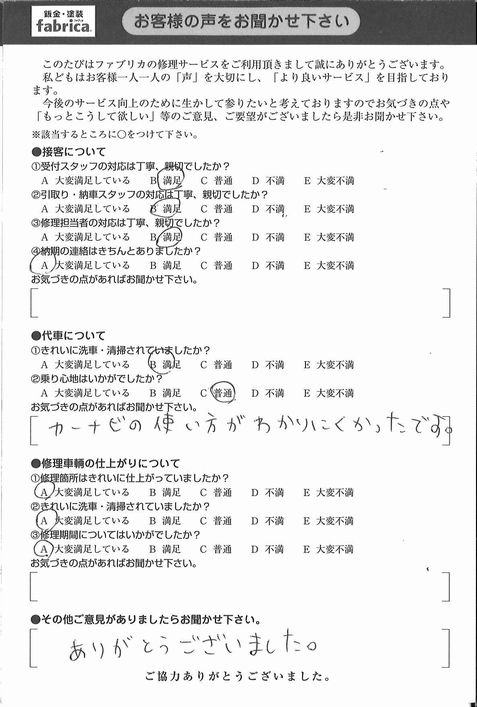 鈑金・塗装
fabrica.
お客様の声をお聞かせ下さい
このたびはファブリカの修理サービスをご利用頂きまして誠にありがとうございます。
私どもはお客様一人一人の「声」を大切にし、「より良いサービス」を目指しており
ます。
今後のサービス向上のために生かして参りたいと考えておりますのでお気づきの点や
「もっとこうして欲しい」等のご意見、ご要望がございましたら是非お聞かせ下さい。
※該当するところに○をつけて下さい。
●接客について
①受付スタッフの対応は丁寧、親切でしたか？
A 大変満足している B 満足 C 普通 D 不満 E 大変不満
②引取り・納車スタッフの対応は丁寧、親切でしたか？
A 大変満足している B 満足 C 普通 D 不満 E 大変不満
③修理担当者の対応は丁寧、親切でしたか？
A 大変満足している B 満足 C 普通 D 不満 E 大変不満
④納期の連絡はきちんとありましたか？
A 大変満足している B 満足 C 普通 D 不満 E 大変不満
お気づきの点があればお聞かせ下さい。
●代車について
①きれいに洗車・清掃されていましたか？
A 大変満足している B 満足 C 普通 D 不満 E 大変不満
②乗り心地はいかがでしたか？
A 大変満足している B 満足 C 普通 D 不満 E 大変不満
お気づきの点があればお聞かせ下さい。
カーナビの使い方がわかりにくかったです。
●修理車輌の仕上がりについて
①修理箇所はきれいに仕上がっていましたか？
A 大変満足している B 満足 C 普通 D 不満 E 大変不満
②きれいに洗車・清掃されていましたか？
A 大変満足している B 満足 C 普通 D 不満 E 大変不満
③修理期間についてはいかがでしたか？
A 大変満足している B 満足 C 普通 D 不満 E 大変不満
お気づきの点があればお聞かせ下さい。
●その他ご意見がありましたらお聞かせ下さい。
ありがとうございました。
ご協力ありがとうございました。